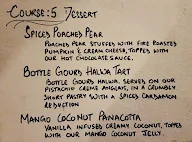 COURSE:5 DESSERT
SPICES POACHES PEAR
POACHES PEAR STUFFES WITH FIRE ROASTES
PUMPKIN & CREAM CHEESE, TOPPES WITH
OUR HOT CHOCOLATE SAUCE.
BOTTLE GOURS HALWA TART
BOTTLE GOURS HALWA, SERVES ON OUR
PISTACHIO CREME ANGLAIS, IN A CRUMBLY
SHORT PASTRY WITH A SPICES CARDAMON
REDUCTION
MANGO COCONUT PANACOTTA
VANILLA INFUSES CREAMY COCONUT, TOPPES
WITH OUR MANGO COCONUT JELLY.